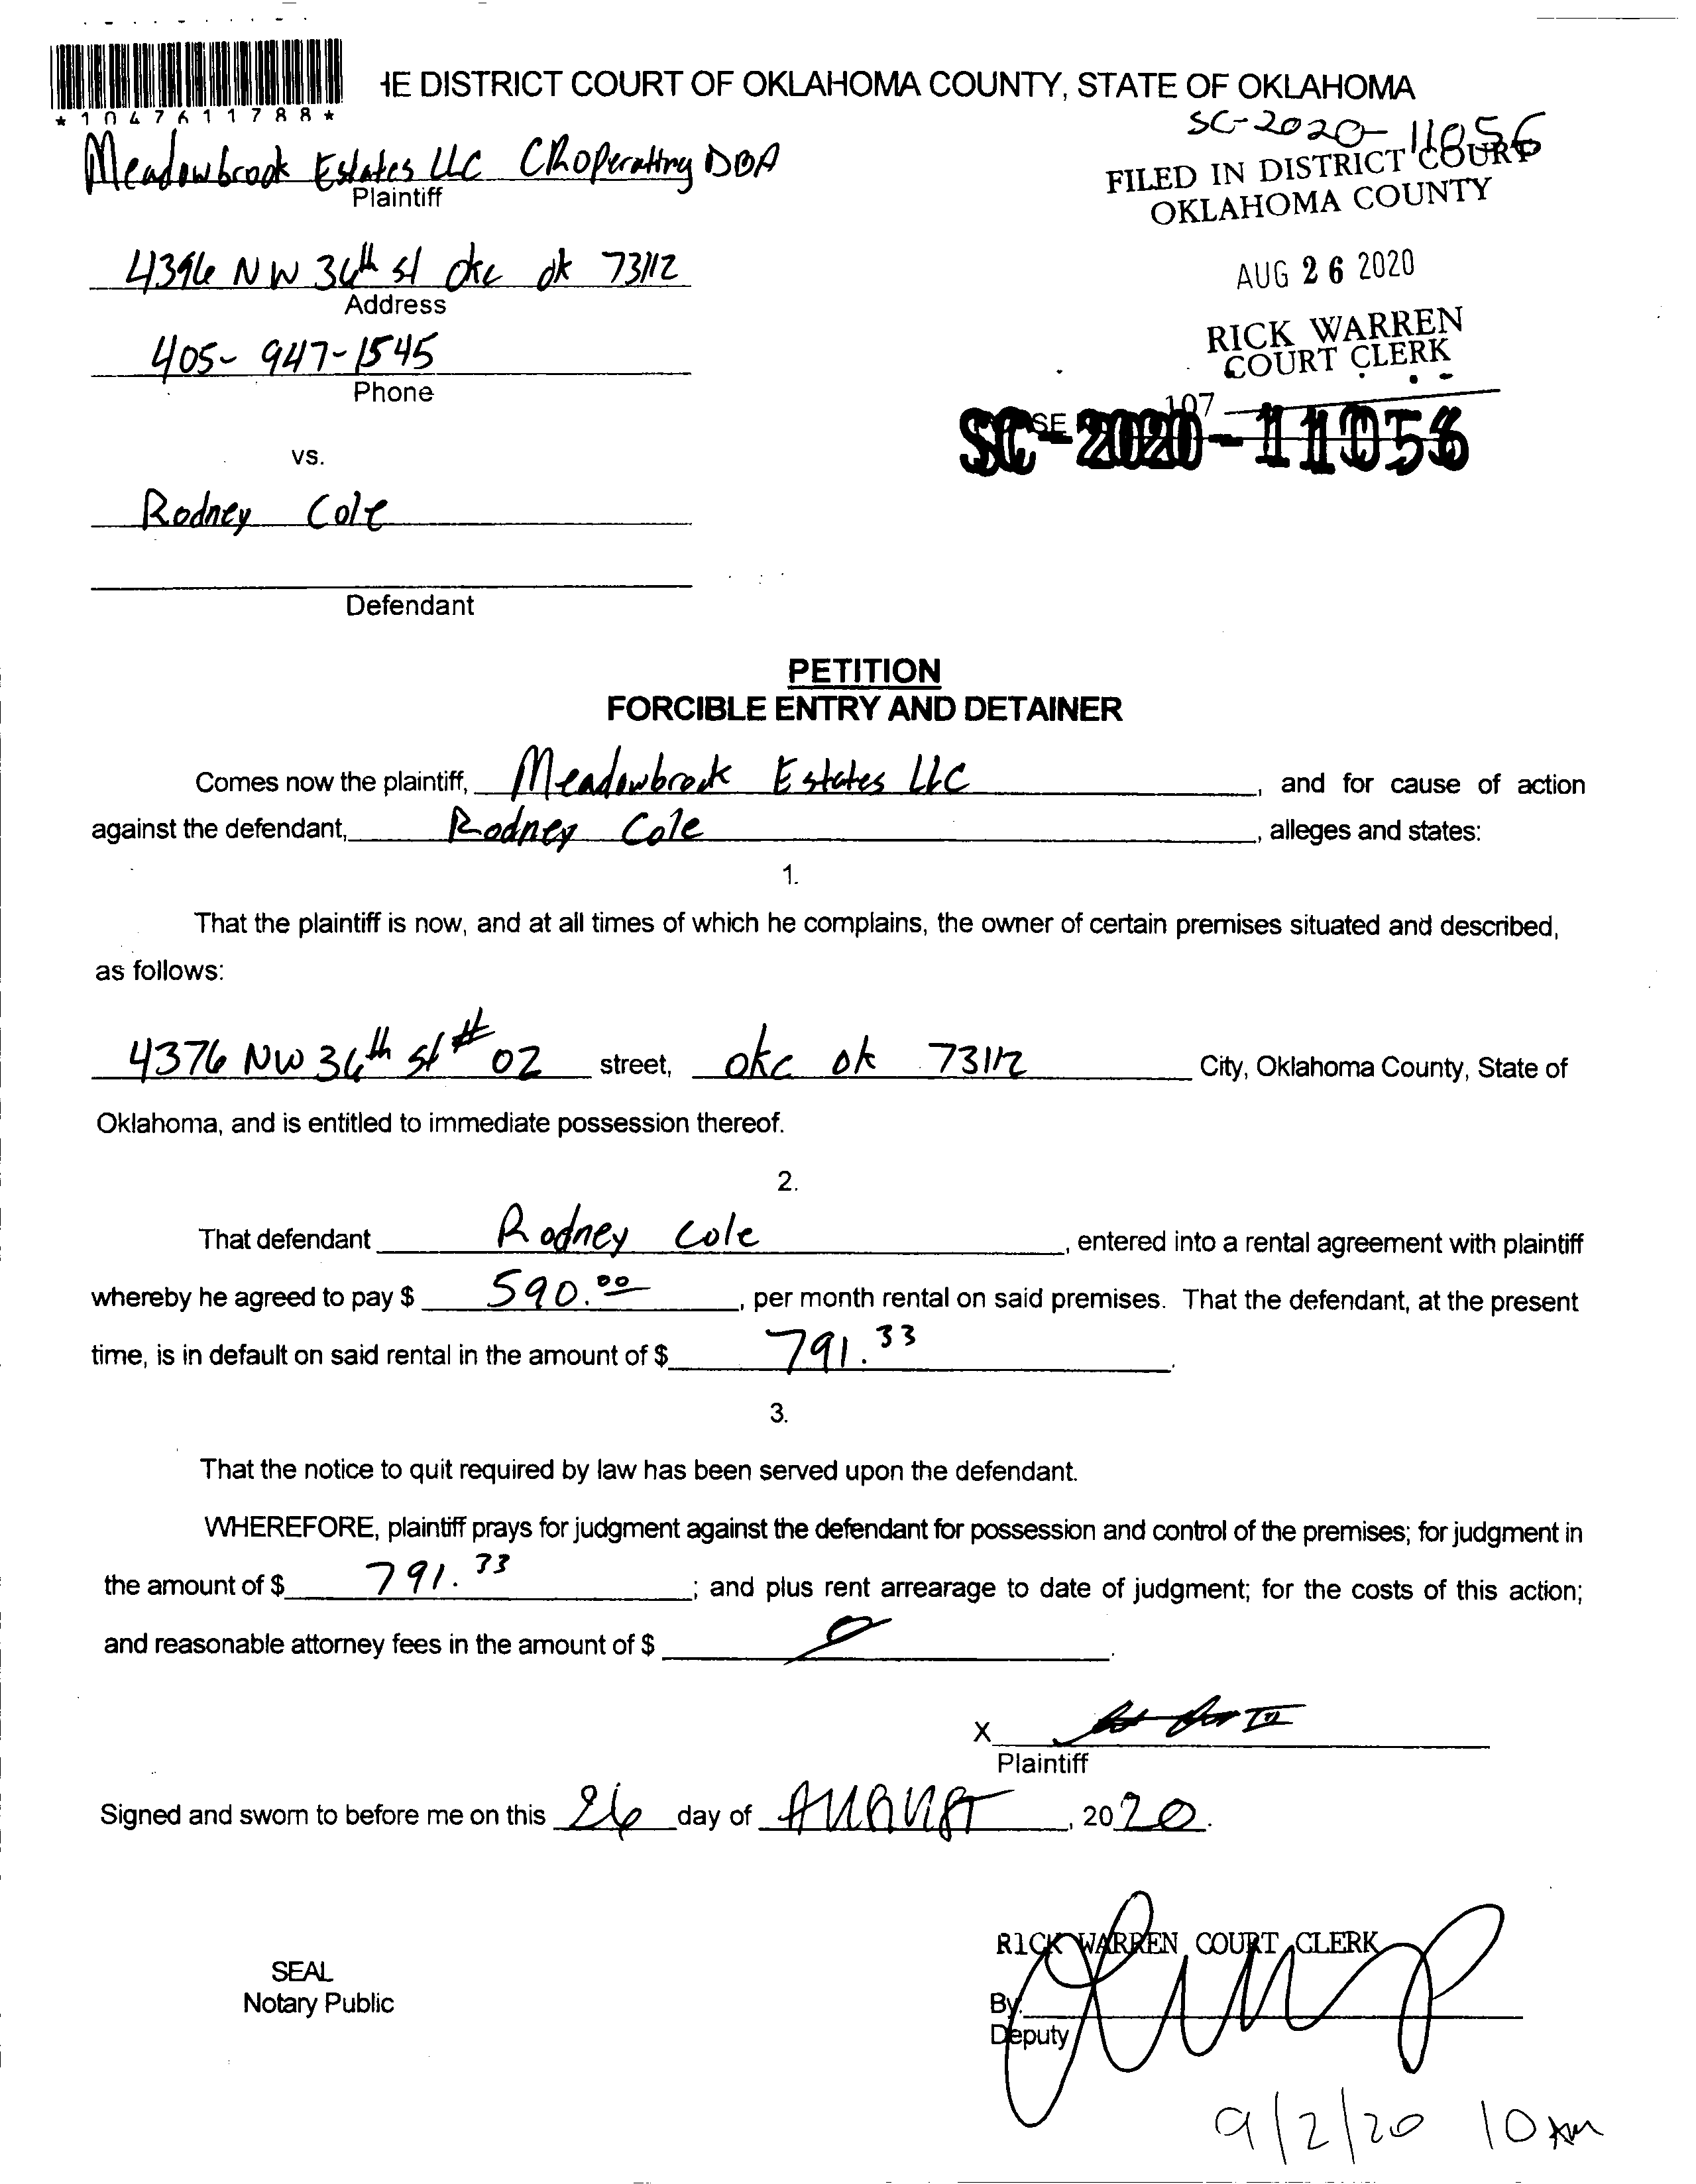 *1047611788*
HE DISTRICT COURT OF OKLAHOMA COUNTY, STATE OF OKLAHOMA
SC-2020-11056
Meadowbrook Estates LLC CROperating DBA
Plaintiff
FILED IN DISTRICT COURT
OKLAHOMA COUNTY
4396 NW 36th st okc ok 73112
Address
AUG 26 2020
405-947-1545
Phone
RICK WARREN
COURT CLERK
107
SC-2020-11056
vs.
Rodney Cole
Defendant
PETITION
FORCIBLE ENTRY AND DETAINER
Comes now the plaintiff, Meadowbrook Estates LLC, and for cause of action
against the defendant, Rodney Cole, alleges and states:
1.
That the plaintiff is now, and at all times of which he complains, the owner of certain premises situated and described,
as follows:
4376 NW 36th st # 02 street, okc ok 73112 City, Oklahoma County, State of
Oklahoma, and is entitled to immediate possession thereof.
2.
That defendant Rodney Cole, entered into a rental agreement with plaintiff
whereby he agreed to pay $ 590.00, per month rental on said premises. That the defendant, at the present
time, is in default on said rental in the amount of $ 791.33.
3.
That the notice to quit required by law has been served upon the defendant.
WHEREFORE, plaintiff prays for judgment against the defendant for possession and control of the premises; for judgment in
the amount of $ 791.33; and plus rent arrearage to date of judgment; for the costs of this action;
and reasonable attorney fees in the amount of $ 0.
X
Plaintiff
Signed and sworn to before me on this 26 day of August, 2020.
RICK WARREN COURT CLERK
SEAL
Notary Public
By.
Deputy
9/2/20 10 AM